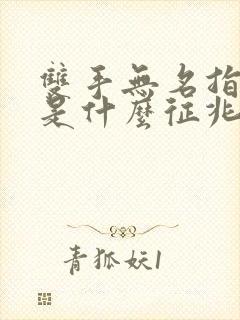 雙手無名指
是什麼征兆
青狐妖1